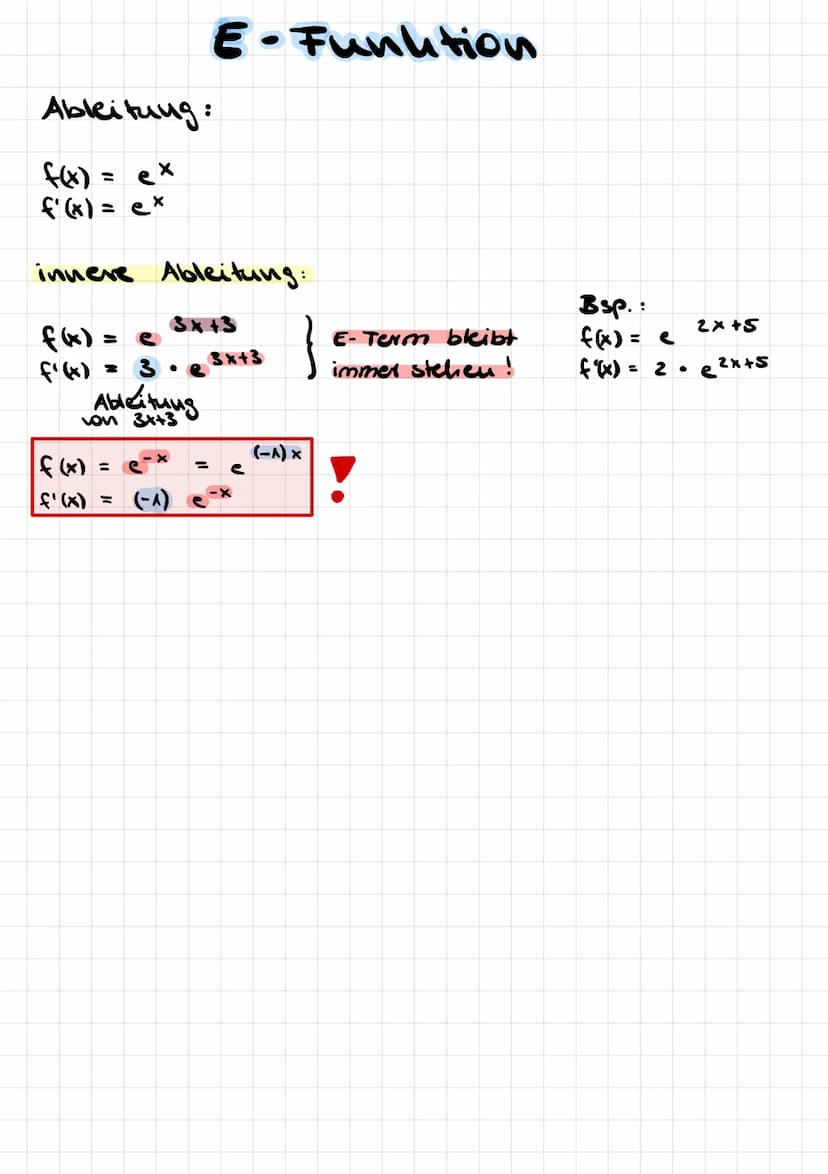 E-Funktion
Ableitung:
f(x) = e^x
f'(x) = e^x
innere Ableitung:
f(x) = e^3x+3
f'(x) = 3 · e^3x+3
Ableitung
von 3x+3
E-Term bleibt
immer stehen!
Bsp.:
f(x) = e^2x+5
f'(x) = 2 · e^2x+5
f(x) = e^-x = e^(-1)x
f'(x) = (-1) e^-x
!